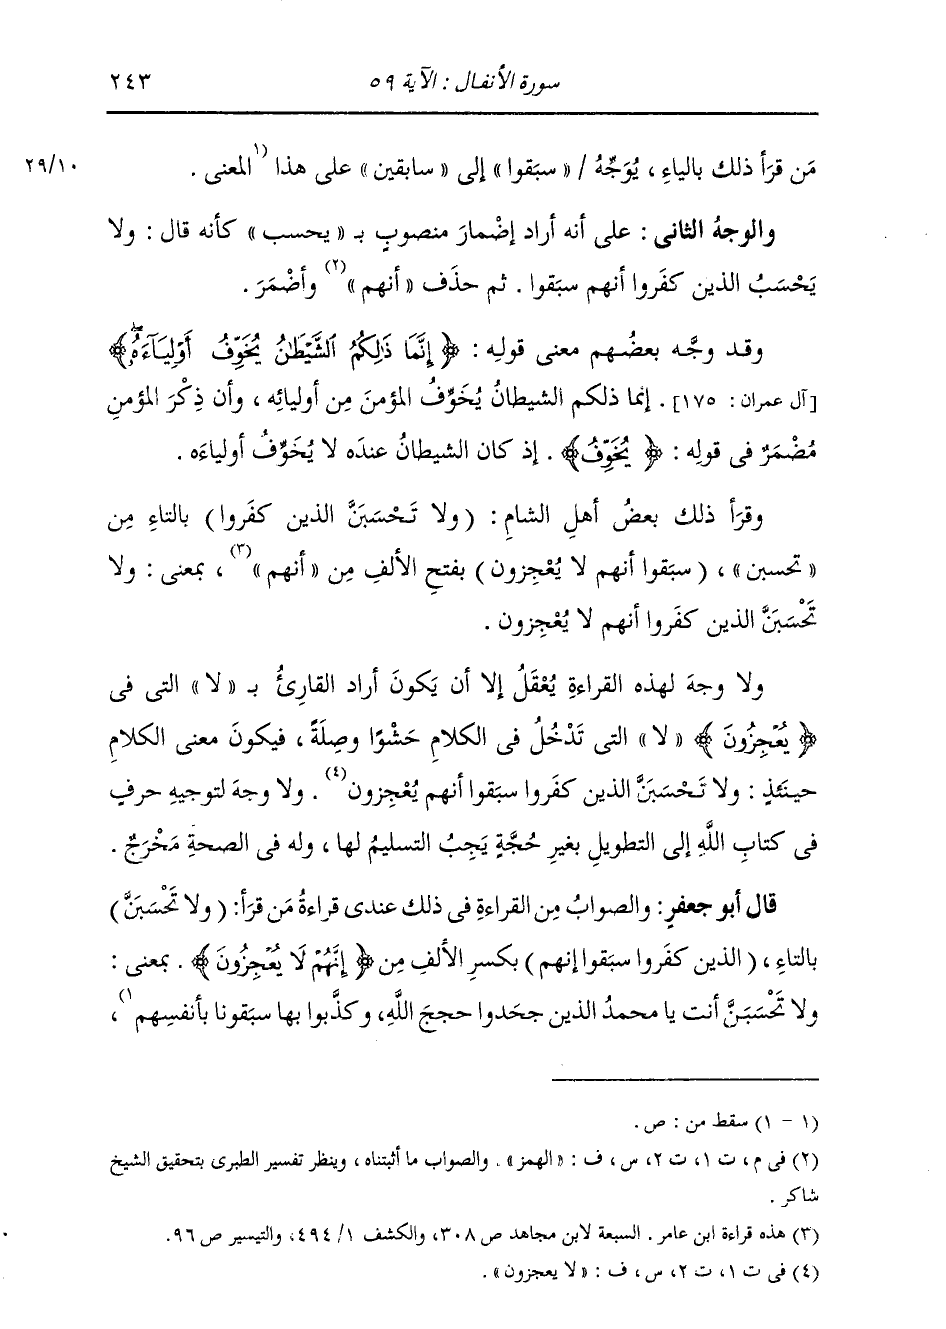 سورة الأنفال : الآية ٥٩ ٢٤٣
مَن قرَأ ذلك بالياءِ ، يُوَجِّهُ / « سبَقوا » إلى « سابقين » على هذا (١ المعنى . ٢٩/١٠
والوجهُ الثانى : على أنه أراد إضْمارَ منصوبٍ بـ « يحسب » كأنه قال : ولا
يَحْسَبُ الذين كفَروا أنهم سبَقوا . ثم حذَف « أنهم » (٢) وأضْمَرَ .
وقد وجَّه بعضُهم معنى قولِه : ﴿ إِنَّمَا ذَٰلِكُمُ ٱلشَّيْطَٰنُ يُخَوِّفُ أَوْلِيَآءَهُۥۖ ﴾
[آل عمران : ١٧٥] . إنما ذلكم الشيطانُ يُخَوِّفُ المؤمنَ مِن أوليائِه ، وأن ذِكْرَ المؤمنِ
مُضْمَرٌ فى قولِه : ﴿ يُخَوِّفُ ﴾ . إذ كان الشيطانُ عندَه لا يُخَوِّفُ أولياءَه .
وقرَأ ذلك بعضُ أهلِ الشامِ : ( ولا تَحْسَبَنَّ الذين كفَروا ) بالتاءِ مِن
« تحسبن » ، ( سبَقوا أنهم لا يُعْجِزون ) بفتحِ الألفِ مِن « أنهم » (٣) ، بمعنى : ولا
تَحْسَبَنَّ الذين كفَروا أنهم لا يُعْجِزون .
ولا وجهَ لهذه القراءةِ يُعْقَلُ إلا أن يَكونَ أراد القارِئُ بـ « لا » التى فى
﴿ يُعْجِزُونَ ﴾ « لا » التى تَدْخُلُ فى الكلامِ حَشْوًا وصِلَةً ، فيكونَ معنى الكلامِ
حينَئذٍ : ولا تَحْسَبَنَّ الذين كفَروا سبَقوا أنهم يُعْجِزون (٤) . ولا وجهَ لتوجيهِ حرفٍ
فى كتابِ اللَّهِ إلى التطويلِ بغيرِ حُجَّةٍ يَجِبُ التسليمُ لها ، وله فى الصحةِ مَخْرَجٌ .
قال أبو جعفرٍ : والصوابُ مِن القراءةِ فى ذلك عندى قراءةُ مَن قرَأ: ( ولا تَحْسَبَنَّ )
بالتاءِ ، ( الذين كفَروا سبَقوا إنهم ) بكسرِ الألفِ مِن ﴿ إِنَّهُمْ لَا يُعْجِزُونَ ﴾ . بمعنى :
ولا تَحْسَبَنَّ أنت يا محمدُ الذين جحَدوا حججَ اللَّهِ، وكذَّبوا بها سبَقونا بأنفسِهم ١) ،
(١ - ١) سقط من : ص .
(٢) فى م ، ت ١، ت ٢، س ، ف : « الهمز » . والصواب ما أثبتناه ، وينظر تفسير الطبرى بتحقيق الشيخ
شاكر .
(٣) هذه قراءة ابن عامر . السبعة لابن مجاهد ص ٣٠٨، والكشف ١/ ٤٩٤، والتيسير ص ٩٦.
(٤) فى ت ١، ت ٢، س ، ف : « لا يعجزون » .